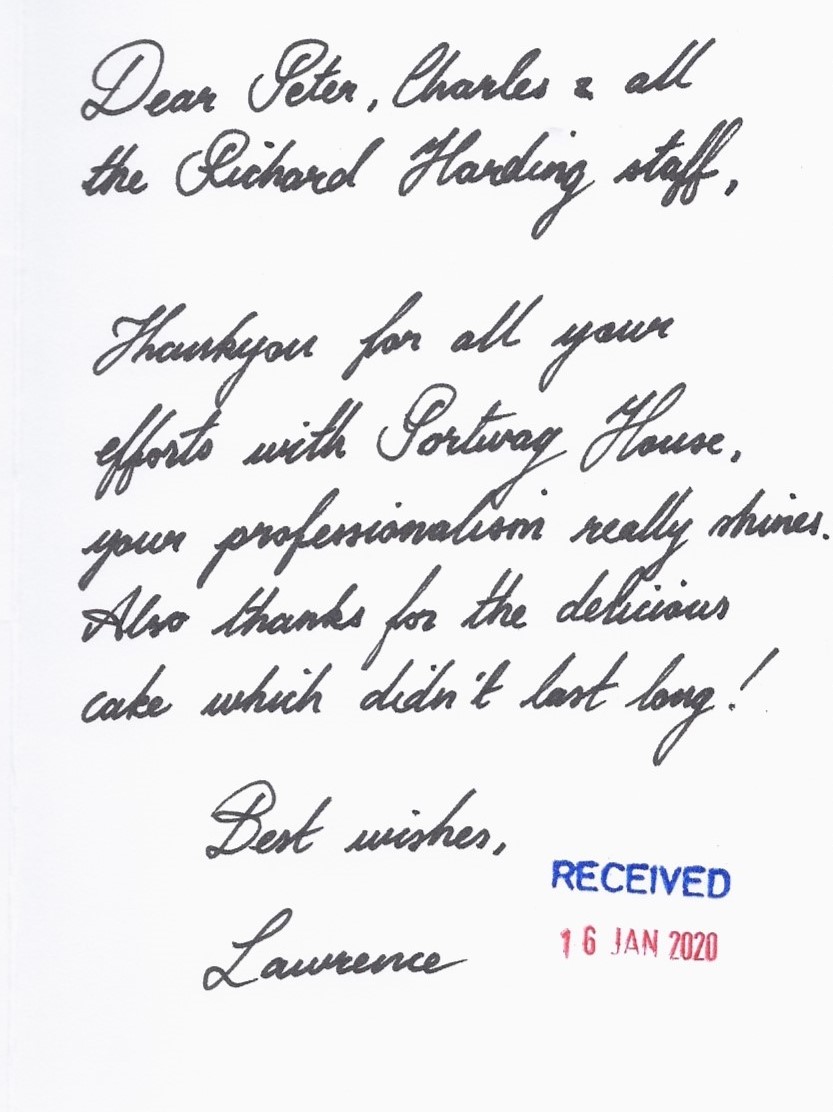 Dear Peter, Charles & all
the Richard Harding staff,
Thankyou for all your
efforts with Portway House,
your professionalism really shines.
Also thanks for the delicious
cake which didn't last long!
Best wishes,
RECEIVED
16 JAN 2020
Lawrence